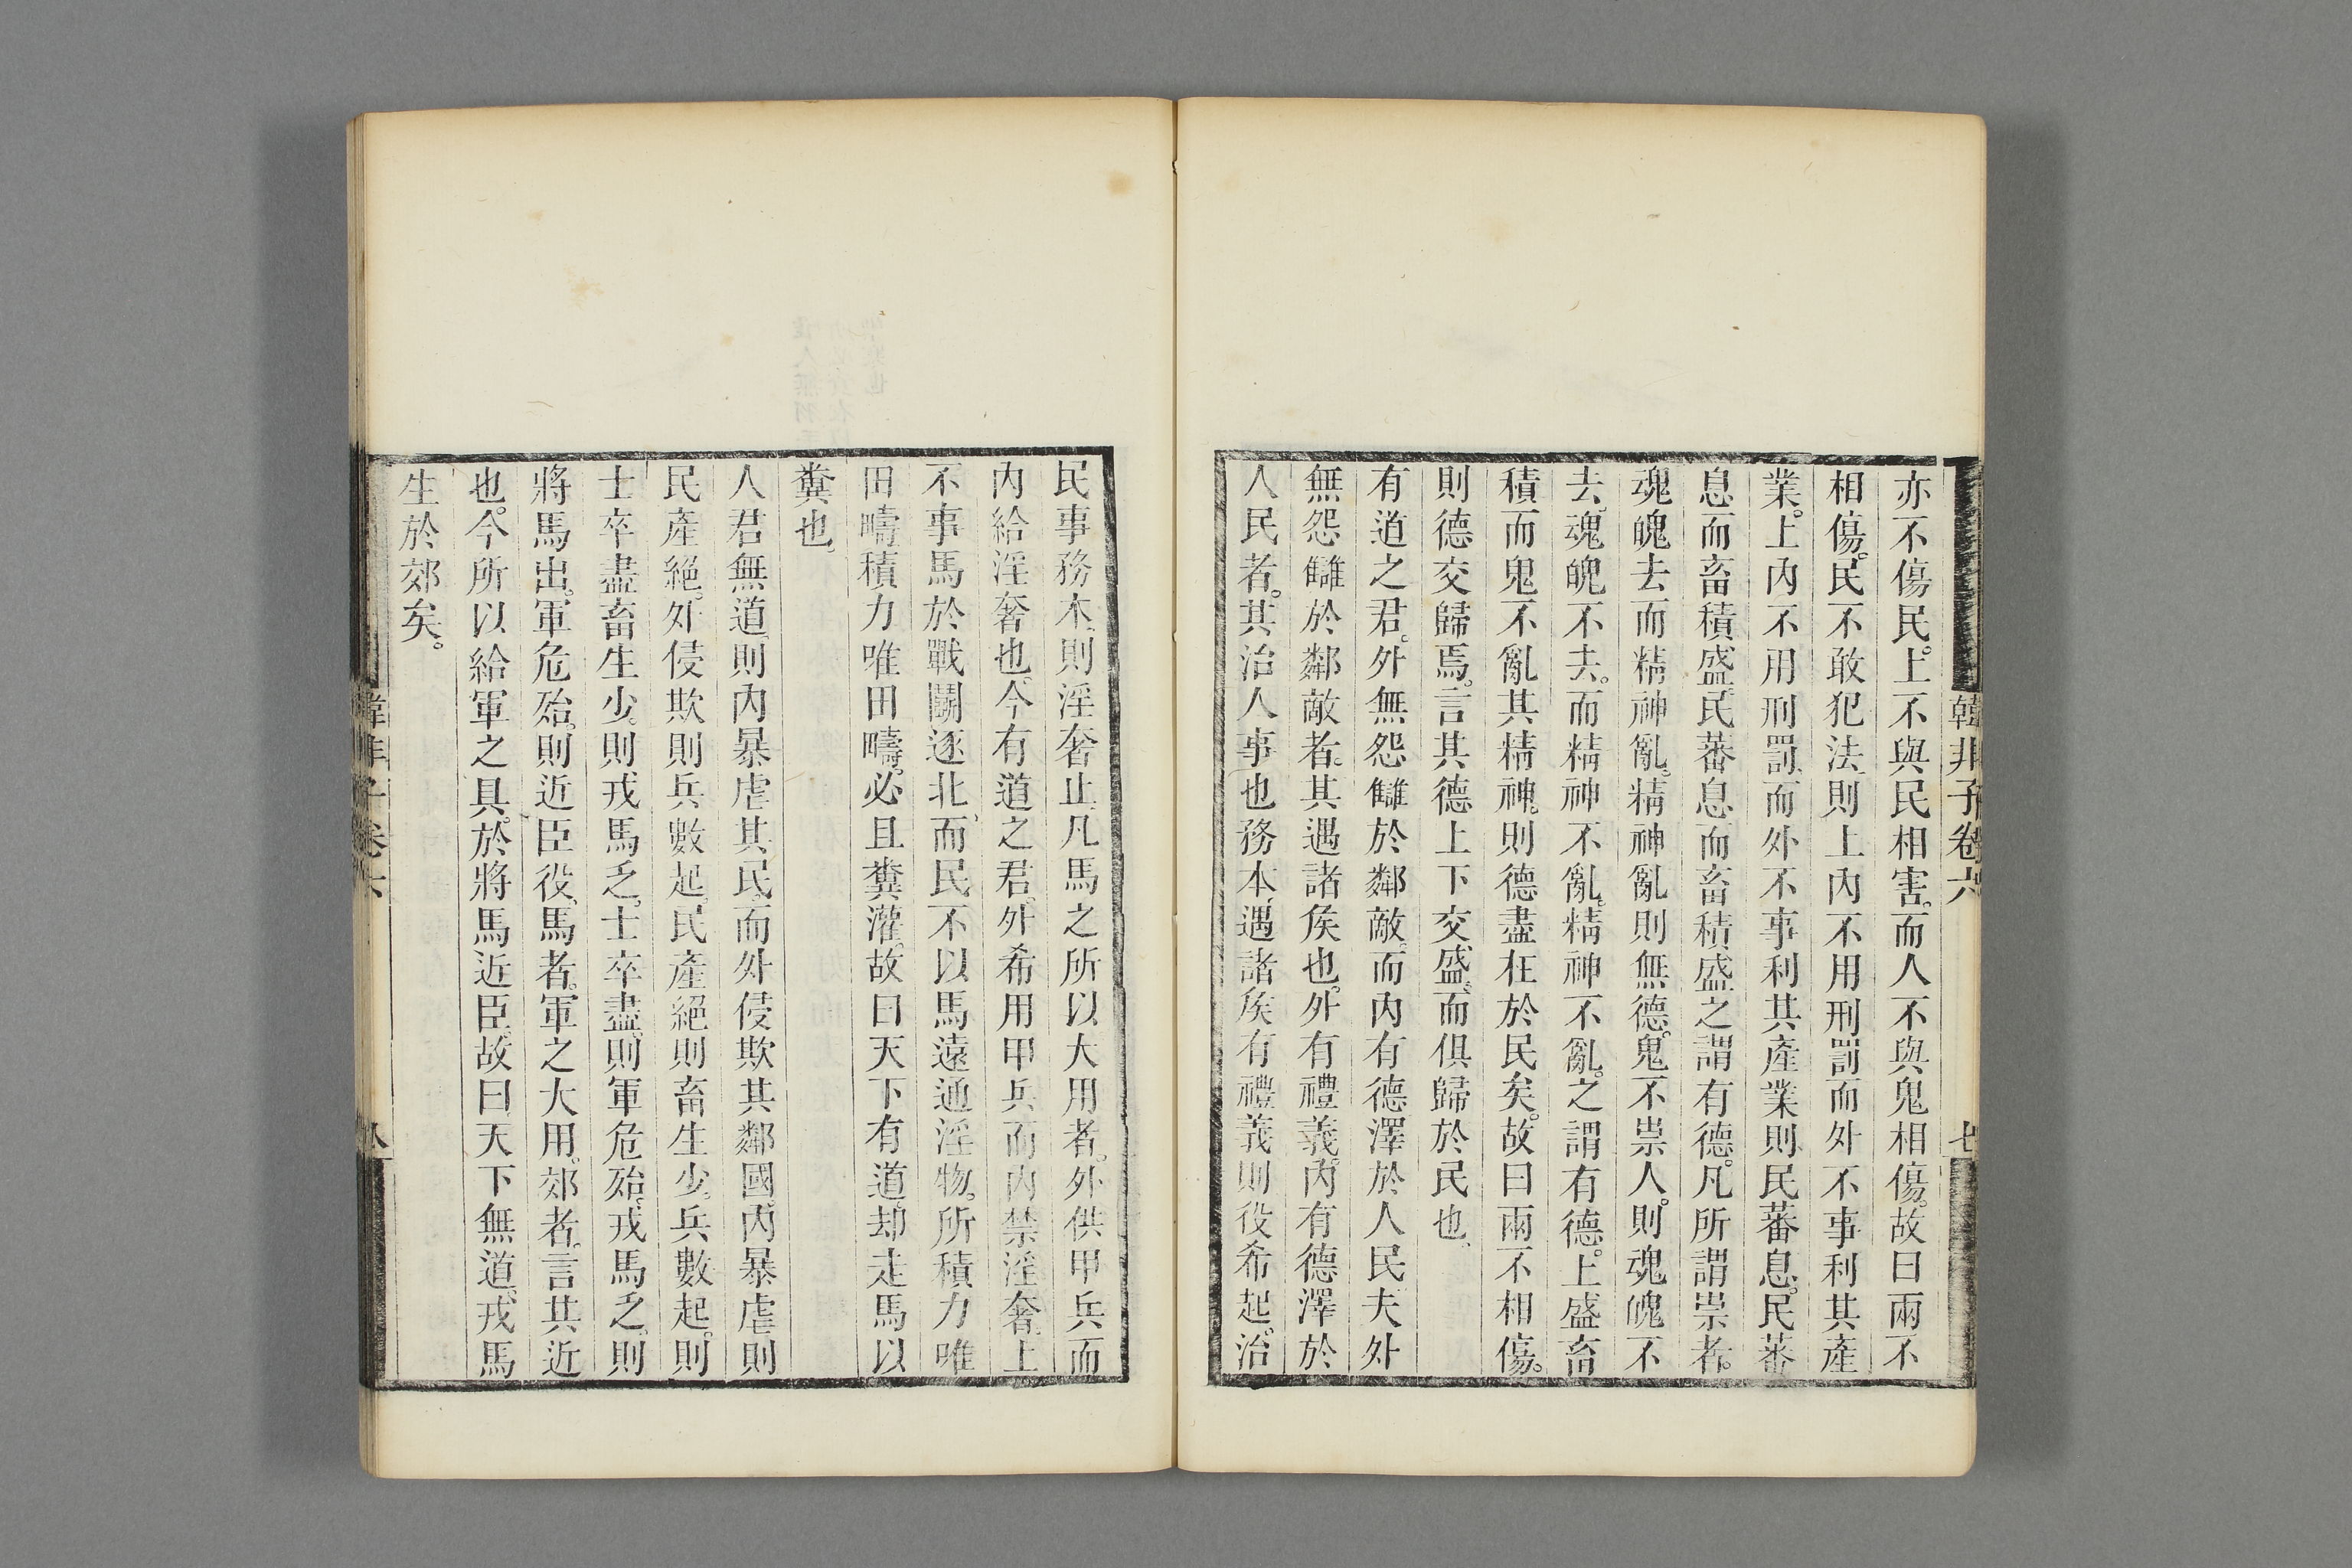 韓非子卷六
七
亦不傷民。上不與民相害。而人不與鬼相傷。故曰兩不
相傷。民不敢犯法、則上內不用刑罰而外不事利其產
業。上內不用刑罰、而外不事利其產業則民蕃息。民蕃
息而畜積盛、民蕃息而畜積盛之謂有德。凡所謂祟者。
魂魄去而精神亂。精神亂則無德。鬼不祟人。則魂魄不
去、魂魄不去。而精神不亂、精神不亂。之謂有德。上盛畜
積而鬼不亂其精神。則德盡在於民矣。故曰兩不相傷。
則德交歸焉。言其德上下交盛、而俱歸於民也。
有道之君。外無怨讎於鄰敵、而內有德澤於人民夫外
無怨讎於鄰敵者。其遇諸矦也。外有禮義。內有德澤於
人民者。其治人事也務本、遇諸矦有禮義則役希起。治
民事務本、則淫奢止、凡馬之所以大用者。外供甲兵而
內給淫奢也、今有道之君。外希用甲兵而內禁淫奢、上
不事馬於戰鬬逐北、而民不以馬遠通淫物。所積力唯
田疇積力唯田疇。必且糞灌。故曰天下有道、却走馬以
糞也。
人君無道、則內暴虐其民、而外侵欺其鄰國。內暴虐則
民產絕。外侵欺則兵數起。民產絕則畜生少。兵數起。則
士卒盡、畜生少。則戎馬乏。士卒盡、則軍危殆。戎馬乏。則
將馬出。軍危殆。則近臣役、馬者。軍之大用。郊者。言其近
也。今所以給軍之具。於將馬近臣。故曰天下無道、戎馬
生於郊矣。
韓非子卷六
八